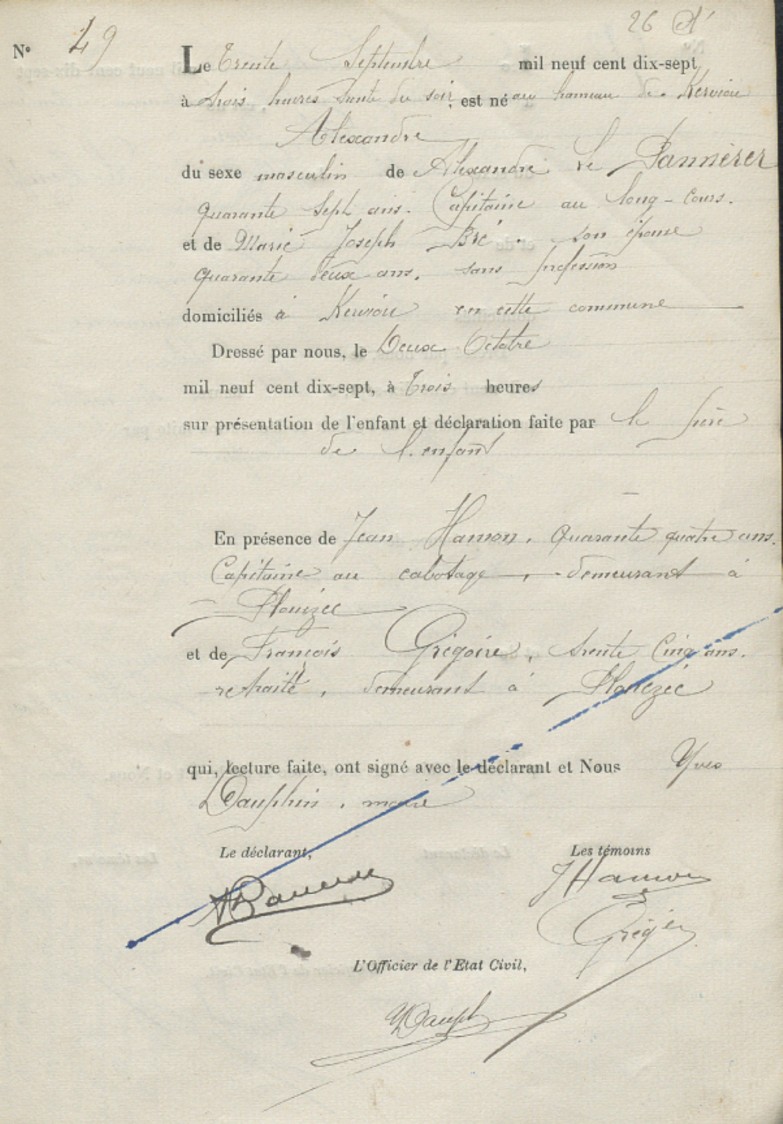 26
N° 49
Le Trente Septembre mil neuf cent dix-sept
à trois heures trente du soir, est né au hameau de Kerviou
Alexandre
du sexe masculin de Alexandre Le Pannérer
quarante sept ans. Capitaine au long-cours.
et de Marie Joseph Bré. son épouse
quarante deux ans. sans profession
domiciliés à Kerviou en cette commune
Dressé par nous, le Deux Octobre
mil neuf cent dix-sept, à Trois heures
sur présentation de l'enfant et déclaration faite par le père
de l'enfant
En présence de Jean Hamon, quarante quatre ans.
Capitaine au cabotage, demeurant à
Plouézec
et de François Grégoire, trente cinq ans.
retraité, demeurant à Plouézec
qui, lecture faite, ont signé avec le déclarant et Nous Yves
Dauphin, maire
Le déclarant, Les témoins
JHamon
L'Officier de l'Etat Civil,